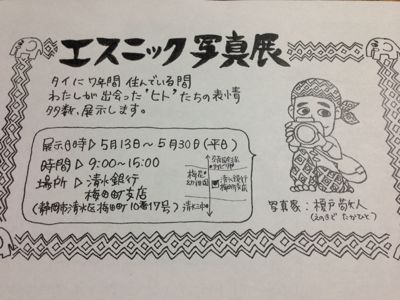 エスニック写真展
タイに7年間住んでいる間
わたしが出会った"ヒト"たちの表情
多数、展示します。
展示日時▷5月13日〜5月30日(平日)
時間▷9:00〜15:00
場所▷清水銀行
梅田町支店
(静岡市清水区梅田町10番17号)
清水銀行
梅田町支店
写真家:榎戸
(えのきど たかひと)